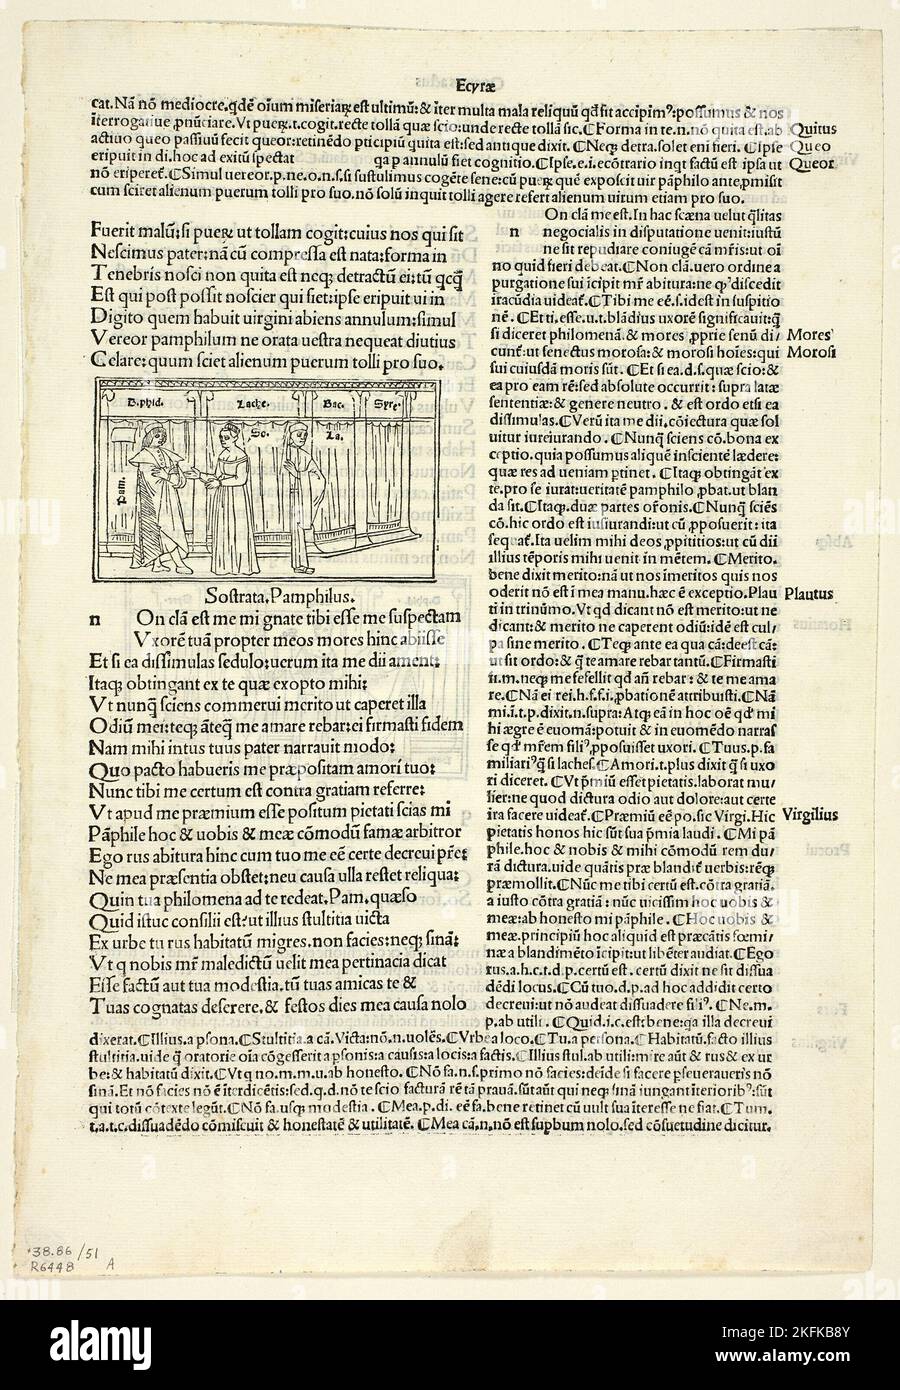 Ecyræ
cat. Nã nõ mediocre, qdẽ oĩum miseriaꝝ est ultimũ: & iter multa mala reliquũ qd sit accipimꝰ: possumus & nos
iterrogatiue, pnũciare. Vt pueꝝ.t.cogit. recte tollã quæ scio: unde recte tollã sic. ⸿Forma in te.n.nõ quita est. ab
Quitus
actiuo queo passiuũ fecit queor: retinẽdo pticipiũ quita est: sed antique dixit. ⸿Neqꝫ detra. solet eni fieri. ⸿Ipse
Queo
eripuit in di. hoc ad exitũ spectat qa p annulũ fiet cognitio. ⸿Ipse.e.i. ecõtrario inqt factũ est ipsa ut
Queor
nõ eriperet. ⸿Simul uereor.p.ne.o.n.s.si sustulimus cogẽte sene: cũ pueꝝ quẽ exposcit uir pãphilo ante, pmisit
cum sciret alienum puerum tolli pro suo. nõ solũ inquit tolli agere refert alienum uirum etiam pro suo.
Fuerit malũ: si pueꝝ ut tollam cogit: cuius nos qui sit
Nescimus pater: nã cũ compressa est nata: forma in
Tenebris nosci non quita est neqꝫ detractũ ei: tũ qcq̃
Est qui post possit noscier qui siet: ipse eripuit ui in
Digito quem habuit uirgini abiens annulum: simul
Vereor pamphilum ne orata uestra nequeat diutius
Celare: quum sciet alienum puerum tolli pro suo.
Phid.
Lache.
Bac.
Syre.
So.
La.
Pam.
Sostrata. Pamphilus.
n On clã est me mi gnate tibi esse me suspectam
Vxorẽ tuã propter meos mores hinc abiisse
Et si ea dissimulas sedulo: uerum ita me dii ament:
Itaqꝫ obtingant ex te quæ exopto mihi:
Vt nunq̃ sciens commerui merito ut caperet illa
Odiũ mei: teqꝫ ãteq̃ me amare rebar: ei firmasti fidem
Nam mihi intus tuus pater narrauit modo:
Quo pacto habueris me præpositam amori tuo:
Nunc tibi me certum est contra gratiam referre:
Vt apud me præmium esse positum pietati scias mi
Pãphile hoc & uobis & meæ cõmodũ famæ arbitror
Ego rus abitura hinc cum tuo me eẽ certe decreui pr̃e:
Ne mea præsentia obstet: neu causa ulla restet reliqua:
Quin tua philomena ad te redeat. Pam. quæso
Quid istuc consilii est: ut illius stultitia uicta
Ex urbe tu rus habitatũ migres. non facies: neqꝫ sinã:
Vt q nobis mr̃ maledictũ uelit mea pertinacia dicat
Esse factũ aut tua modestia. tũ tuas amicas te &
Tuas cognatas deserere. & festos dies mea causa nolo
On clã me est. In hac scæna uelut qlitas
n negocialis in disputatione uenit: iustũ
ne sit repudiare coniugẽ cã mr̃is: ut oĩ
no quid fieri debeat. ⸿Non clã. uero ordine a
purgatione sui icipit mr̃ abitura: ne qꝰ discedit
iracũdia uideat̃. ⸿Tibi me eẽ.s. idest in suspitio
nẽ. ⸿Et i. esse.u.t. blãdius uxorẽ significauit: q̃
si diceret philomenã & mores, pprie senũ di/
Mores
cunt̃: ut senectus morosa: & morosi hoĩes: qui
Morosi
sui cuiusdã moris sũt. ⸿Et si ea.d.s. quæ scio: &
ea pro eam rẽ: sed absolute occurrit: supra latæ
sententiæ: & genere neutro. & est ordo etsi ea
dissimulas. ⸿Verũ ita me dii. cõiectura quæ sol
uitur iureiurando. ⸿Nunq̃ sciens cõ. bona ex
ceptio. quia possumus aliquẽ insciente lædere:
quæ res ad ueniam ptinet. ⸿Itaqꝫ obtingãt ex
te. pro se iurat: ueritatẽ pamphilo, pbat. ut blan
da sit. ⸿Itaqꝫ. duæ partes or̃onis. ⸿Nunq̃ sciẽs
cõ. hic ordo est iusiurandi: ut cũ, pposuerit: ita
sequat̃. Ita uelim mihi deos, ppititios: ut cũ dii
illius tẽporis mihi uenit in mẽtem. ⸿Merito.
bene dixit merito: nã ut nos ĩmeritos quis nos
oderit nõ est ĩ mea manu. hæc ẽ exceptio. Plau
Plautus
ti in trinũmo. Vt qd dicant nõ est merito: ut ne
dicant: & merito ne caperent odiũ: idẽ est cul/
pa sine merito. ⸿Teqꝫ ante ea qua cã: deest cã:
ut sit ordo: & q̃ te amare rebar tantũ. ⸿Firmasti
fi.m. neqꝫ me fefellit qd añ rebar: & te me ama
re. ⸿Nã ei rei.h.f.f.i, pbationẽ attribuisti. ⸿Nã
mi.i.t.p. dixit.n. supra: Atqꝫ eã in hoc oẽ qdꝰ mi
hi ægre ẽ euomã: potuit & in euomẽdo narras
se qdꝰ mr̃em filiꝰ, pposuisset uxori. ⸿Tuus.p. fa
miliariꝰ q̃ si laches. ⸿Amori.t. plus dixit q̃ si uxo
ri diceret. ⸿Vt p̃miũ esset pietatis. laborat mu/
lier: ne quod dictura odio aut dolore: aut certe
ira facere uideat̃. ⸿Præmiũ eẽ po. sic Virgi. Hic
Virgilius
pietatis honos hic sũt sua p̃mia laudi. ⸿Mi pã
phile. hoc & nobis & mihi cõmodũ rem du/
rã dictura. uide quãtis præ blandit̃ uerbis: rẽqꝫ
præmollit. ⸿Nũc me tibi certũ est. cõtra gratiã.
a iusto cõtra gratiã: nũc uicissim hoc uobis &
meæ: ab honesto mi pãphile. ⸿Hoc uobis &
meæ. principiũ hoc aliquid est præcãtis fœmi/
næ a blandimẽto ĩcipit: ut libẽter audiat. ⸿Ego
rus.a.h.c.t.d.p. certũ est. certũ dixit ne sit dissua
dẽdi locus. ⸿Cũ tuo.d.p. ad hoc addidit certo
decreui: ut nõ audeat dissuadere filiꝰ. ⸿Ne.m.
p. ab utili. ⸿Quid.i.c. est: bene: qa illa decreui
dixerat. ⸿Illius. a psona. ⸿Stultitia. a cã. Victa: nõ.n. uolẽs. ⸿Vrbe a loco. ⸿Tu. a persona. ⸿Habitatũ. facto illius
stultitia. uide q̃ oratorie oĩa cõgesserit a psonis: a causis: a locis: a factis. ⸿Illius stul. ab utili: mire aũt & rus & ex ur
be: & habitatũ dixit. ⸿Vt q no.m.m.u. ab honesto. ⸿Nõ fa.n.s. primo nõ facies: deide si facere pseueraueris nõ
sinã. Et nõ facies nõ ẽ ĩterdicẽtis: sed.q.d. nõ te scio facturã rẽ tã prauã. sũt aũt qui neqꝫ sinã iungant ĩterioribꝰ: sũt
qui totũ cõtexte legũt. ⸿Nõ fa. usqꝫ modestia. ⸿Mea.p.di. eẽ fa. bene retinet cũ uult sua ĩteresse ne fiat. ⸿Tum.
t.a.t.c. dissuadẽdo cõmiscuit & honestatẽ & utilitatẽ. ⸿Mea cã.n. nõ est supbum nolo. sed cõsuetudine dicitur.
38.86/51
R6448 A
alamy
Image ID: 2KFKB8Y
www.alamy.com